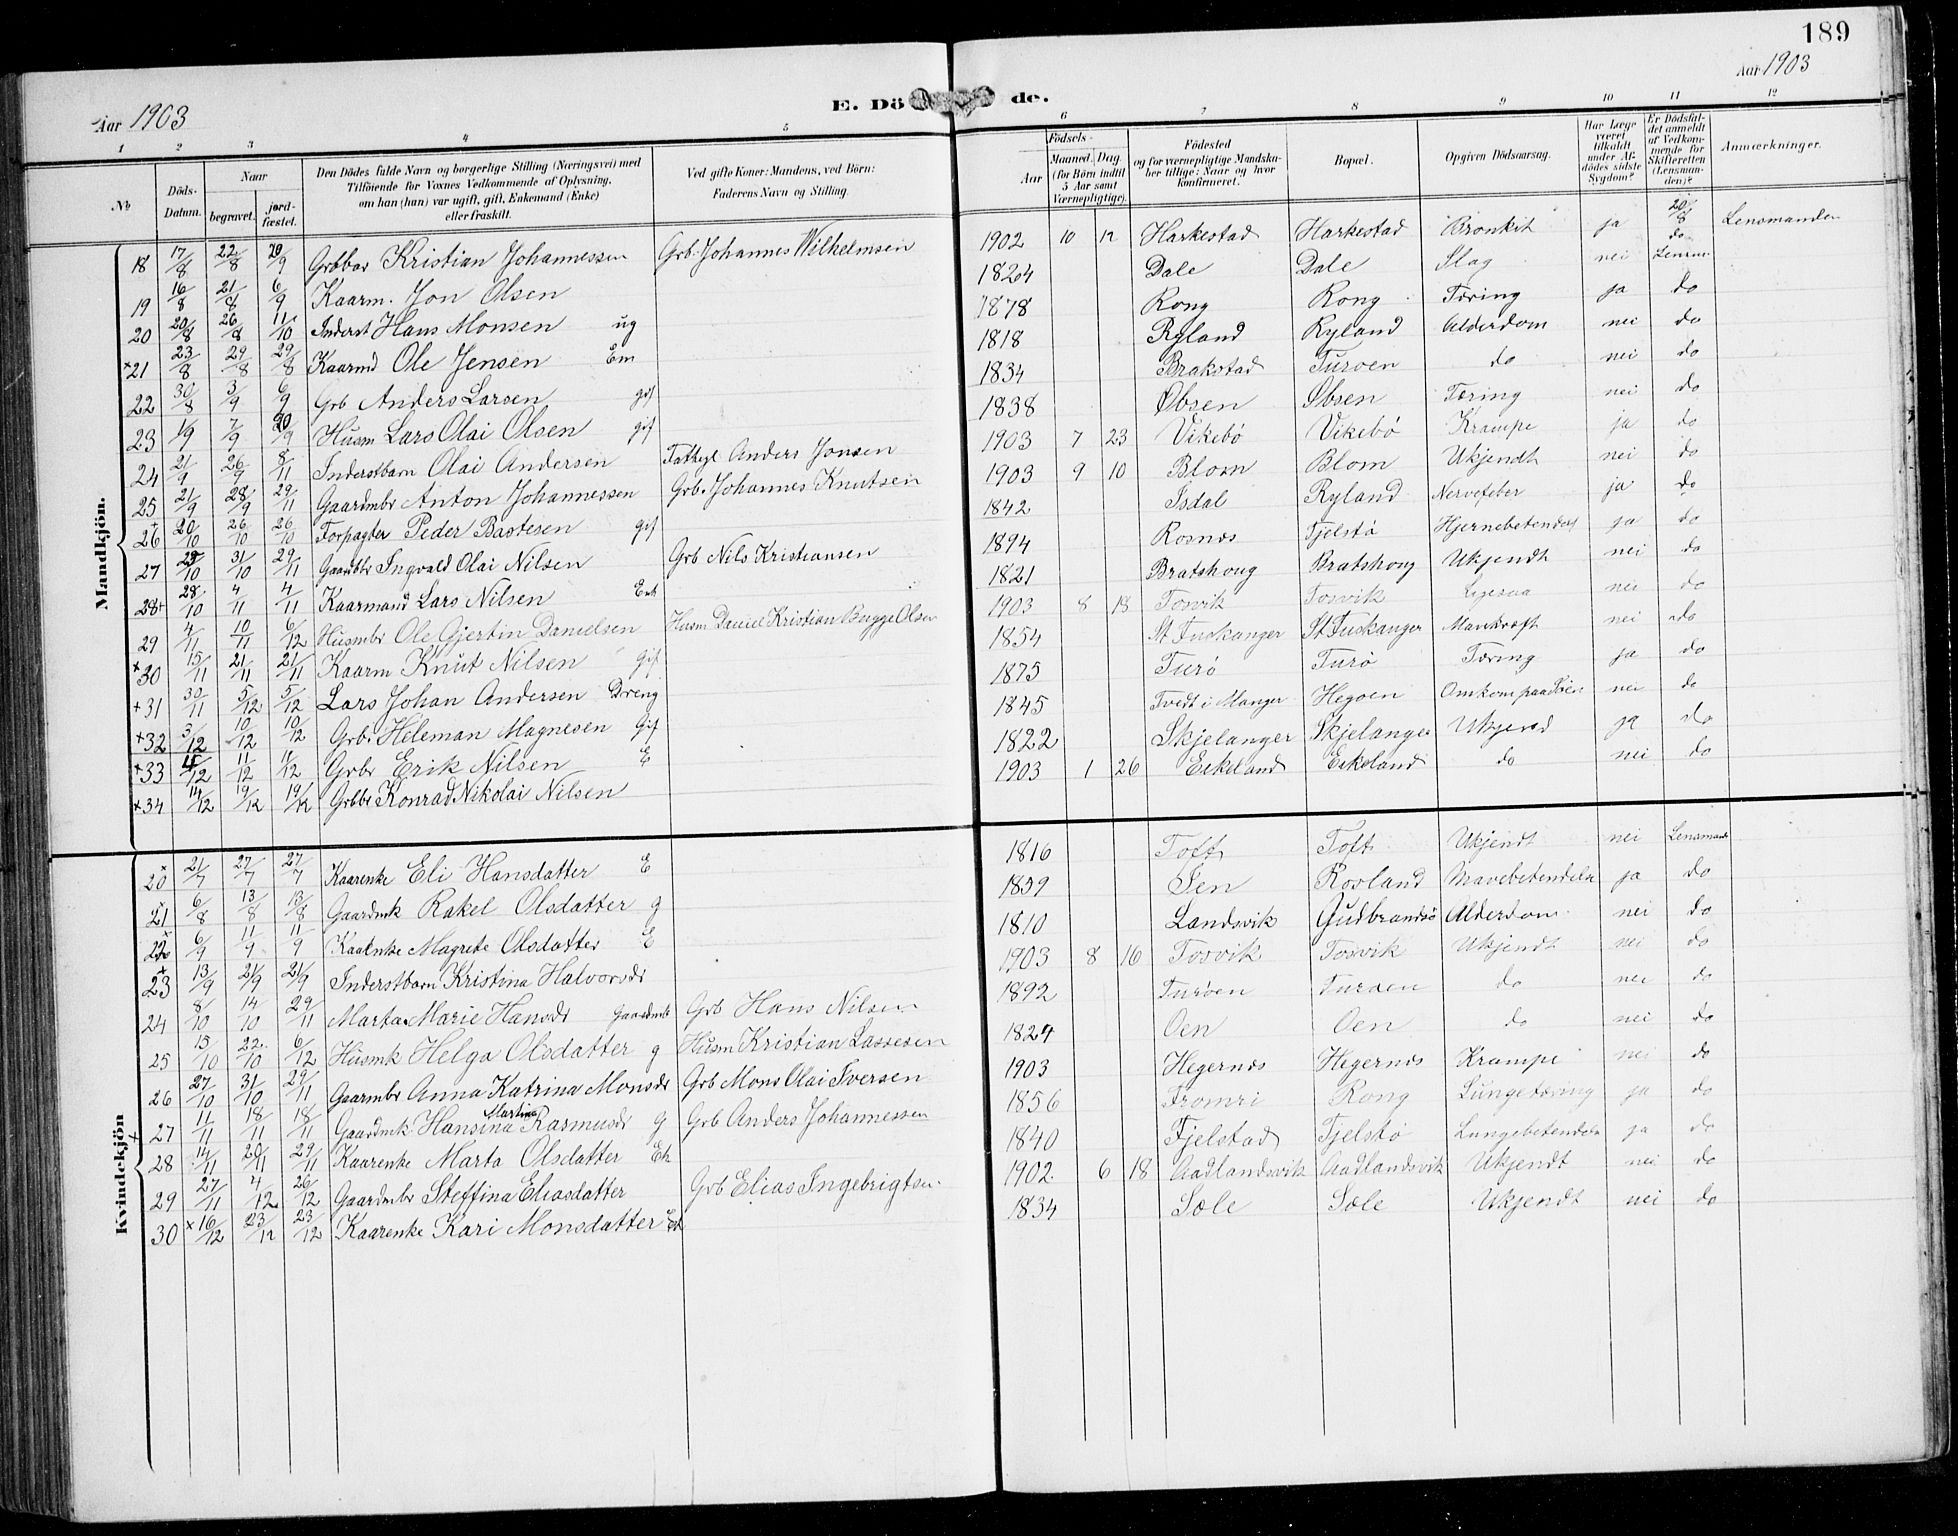 189
Aar 1903 E. Dö de. Aar 1903
1 2 3 4 5 6 7 8 9 10 11 12
No Döds-Datum. Naar begravet. jord-fæstet. Den Dödes fulde Navn og borgerlige Stilling (Næringsvei) med Tilföiende for Voxnes Vedkommende af Oplysning, om han (hun) var ugift, gift, Enkemand (Enke) eller fraskilt. Ved gifte Koner: Mandens, ved Börn: Faderens Navn og Stilling. Födsels- Aar Maaned. Dag. (for Börn indtil 5 Aar samt Værnepligtige). Födested og for værnepligtige Mandskaber tillige: Naar og hvor konfirmeret. Bopæl. Opgiven Dödsaarsag. Har Læge været tilkaldt under Afdödes sidste Sygdom? Er Dödsfaldet anmeldt af Vedkommende for Skifteretten (Lensmanden)? Anmærkninger.
Mandkjön.
18 17/8 22/8 Grbbar Kristian Johannessen Grb. Johannes Wilhelmsen 1902 10 12 Harkestad Harkestad Bronkit ja 20/8 do Lensmanden
19 16/8 21/8 6/9 Kaarm. Jon Olsen 1824 Dale Dale Slag nei Lensm
20 20/8 26/8 11/10 Inderst Hans Monsen ug 1878 Rong Rong Tæring ja do
+21 23/8 29/8 29/8 Kaarmd Ole Jensen Em 1818 Ryland Ryland Alderdom nei do
22 30/8 3/9 6/9 Grb Anders Larsen gif 1834 Brakstad Turoen do nei do
23 1/9 7/9 Husm Lars Olai Olsen gif 1838 Øbsen Øbsen Tæring nei do
24 21/9 26/9 8/11 Inderstbarn Olai Andersen Fathyl Anders Jonsen 1903 7 23 Vikebø Vikebø Krampe ja do
25 21/9 28/9 29/11 Gaardmbr Anton Johannessen Grb. Johannes Knutsen 1903 9 10 Blom Blom Ukjendt nei do
+26 20/10 26/10 26/10 Forpagter Peder Bastesen gif 1842 Isdal Ryland Nervefeber ja do
27 25/10 31/10 29/11 Gaardbr Ingvald Olai Nilsen Grb Nils Kristiansen 1894 Rosnes Fjelstø Hjernebetendels ja do
28+ 28/10 4/11 4/11 Kaarmand Lars Nilsen Enk 1821 Bratshoug Bratshoug Ukjendt nei do
29 4/11 10/11 6/12 Husmbr Ole Gjertin Danielsen Husm Daniel Kristian Bugge Olsen 1903 8 18 Tosvik Tosvik nei do
+30 15/11 21/11 21/11 Kaarm Knut Nilsen Gif 1854 St Fuskanger St Fuskanger nei do
+31 30/11 5/12 5/12 Lars Johan Andersen Dreng 1875 Turø Turø Tæring ja do
+32 3/12 10/12 10/12 Grbr Heleman Magnesen Gif 1845 Tvedt i Manger Hegoen Omkom paa Søen nei do
+33 4/12 11/12 11/12 Grbr Erik Nilsen E 1822 Skjelanger Skjelanger Ukjend ja do
+34 14/12 19/12 19/12 Grbbr Konrad Nikolai Nilsen 1903 1 26 Eikeland Eikeland do nei do
Kvindekjön
20+ 21/7 27/7 27/7 Kaarenke Eli Hansdatter E 1816 Toft Toft Ukjendt nei Lensmand
21+ 6/8 13/8 13/8 Gaardmk Rakel Olsdatter g 1839 Sen Rosland Mavebetendelse ja do
22+ 6/9 11/9 11/9 Kaarenke Magrete Olsdatter E 1810 Landsvik Gudbrandsø Alderdom nei do
23+ 13/9 21/9 21/9 Inderstbarn Kristina Halvorsdr 1903 8 16 Tosvik Tosvik Ukjendt nei do
24 8/10 14/10 29/11 Marta Marie Hansdr gaardmb Grb Hans Nilsen 1892 Turøen Turøen do nei do
25 15/10 22/10 6/12 Husmk Helga Olsdatter g Husm Kristian Lassesen 1824 Oen Oen do nei do
26 27/10 31/10 29/11 Gaarmbr Anna Katrina Monsdr Grb Mons Olai Iversen 1903 Hegernes Hegernes Krampe nei do
27+ 11/11 18/11 18/11 Gaardmk Hansina Martina Rasmusdr g Grb Anders Johannessen 1856 Fromri Rong Lungetæring ja do
28 14/11 20/11 29/11 Kaarenke Marta Olsdatter Ek 1840 Fjelstad Fjelstø Lungebetendels ja do
29 27/11 4/12 26/12 Gaardmbr Steffina Eliasdatter Grb Elias Ingebrigtsn. 1902 6 18 Aadlandsvik Aadlandsvik Ukjendt nei do
30 x16/12 23/12 23/12 Kaarenke Kari Monsdatter Ek 1834 Sæle Sæle Ukjendt nei do